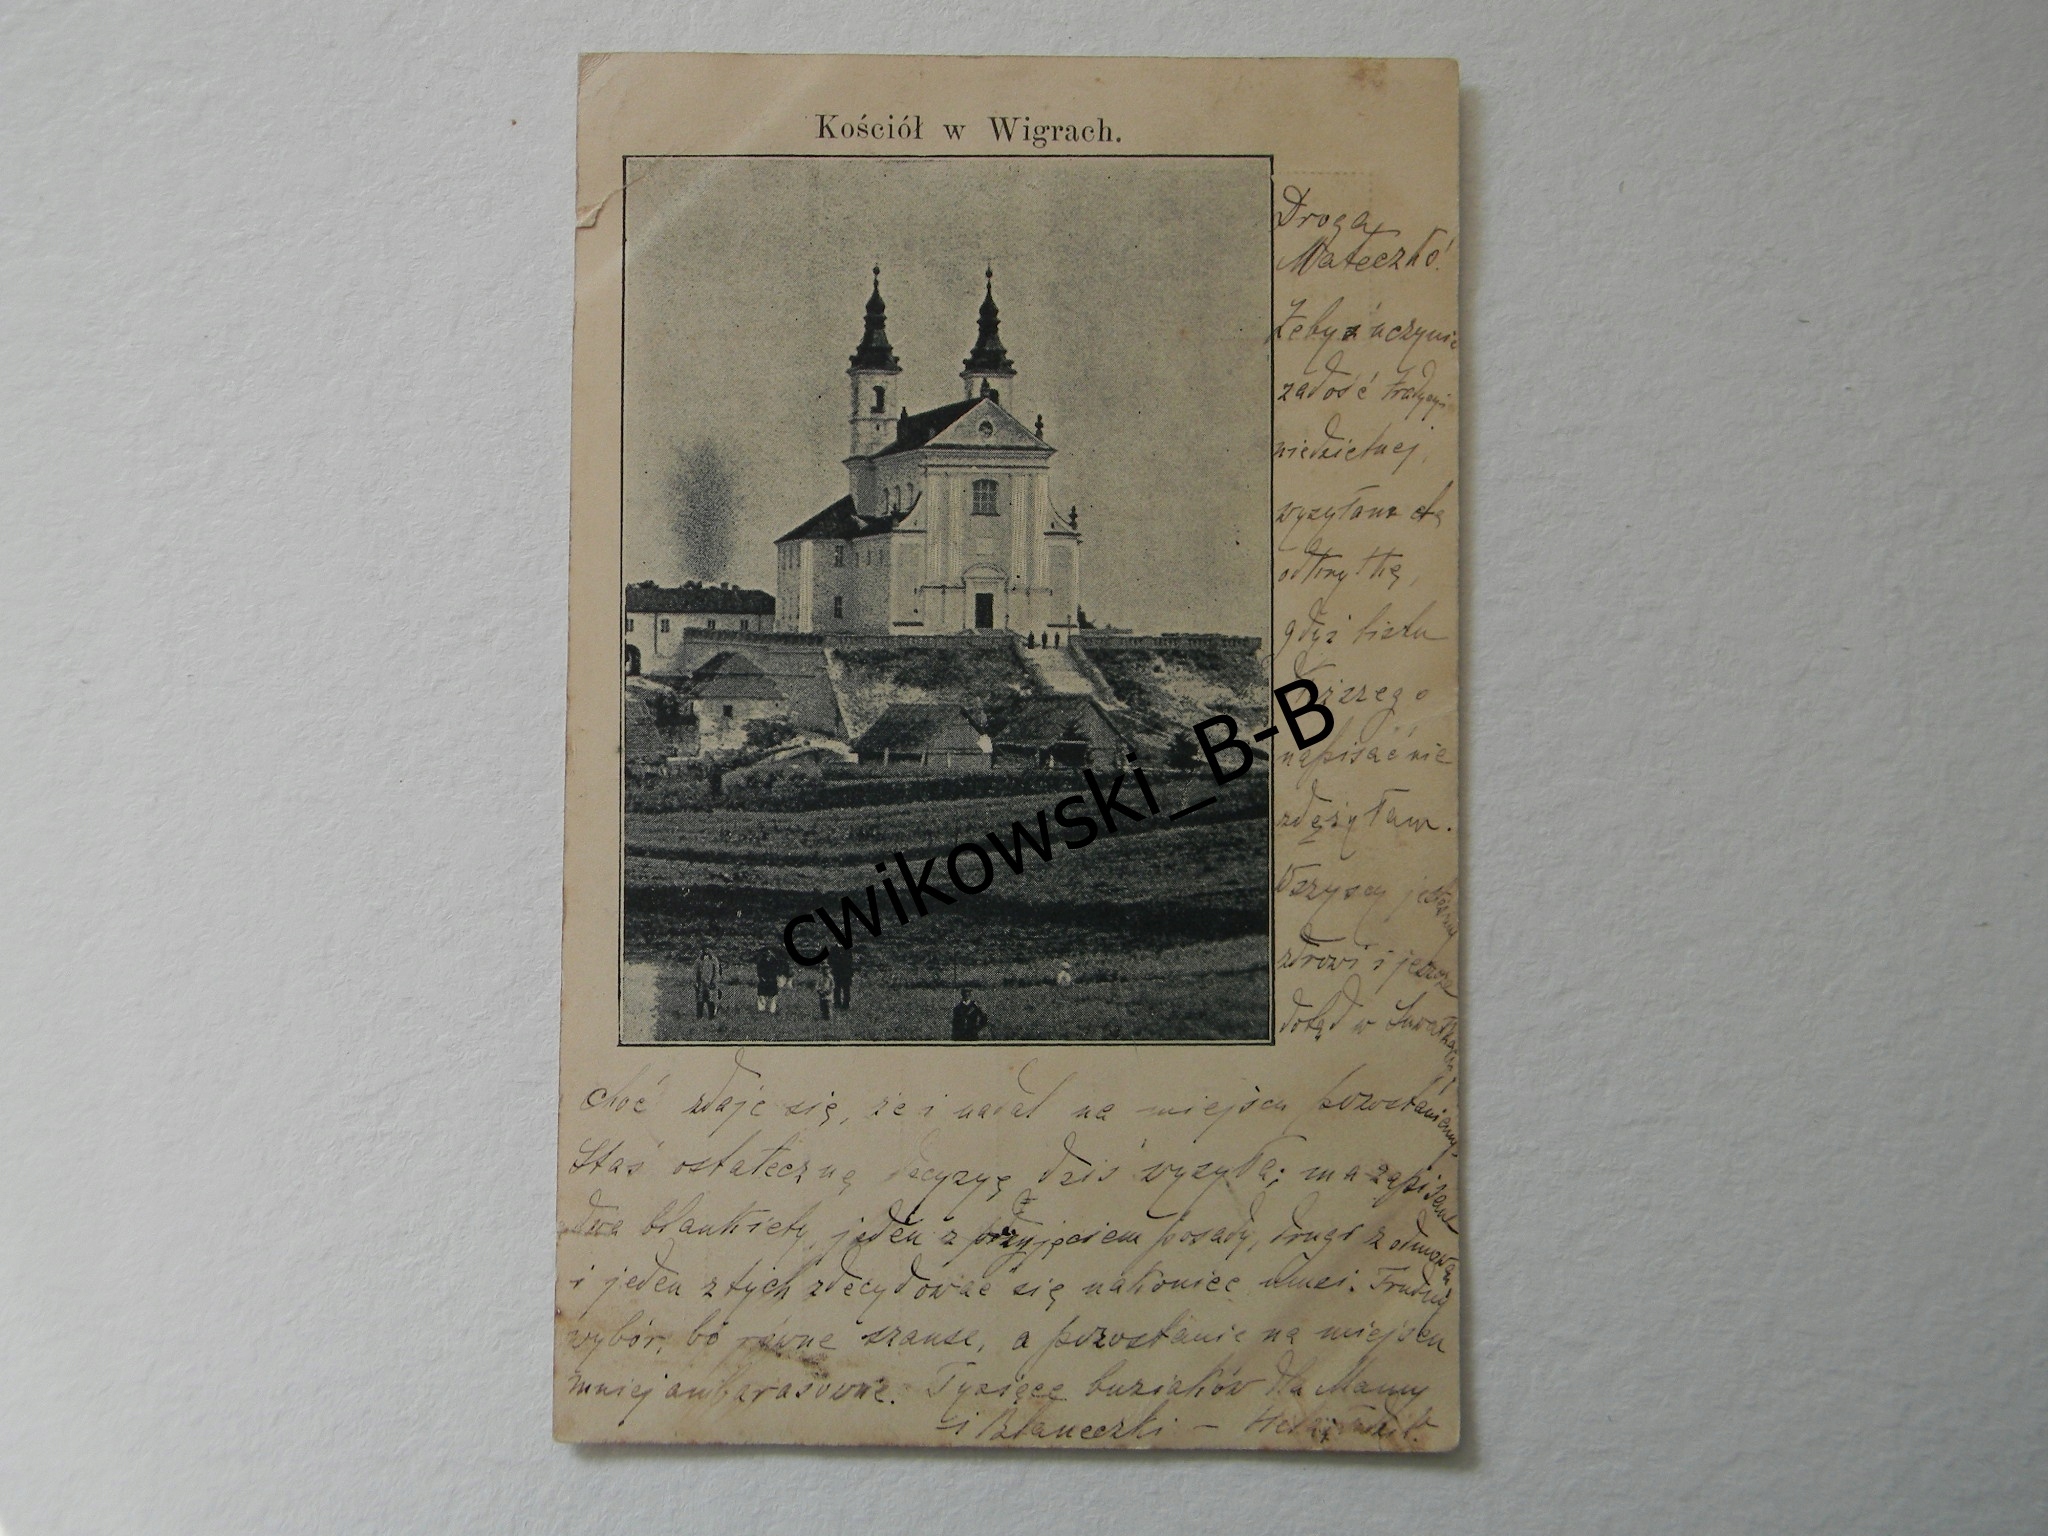 Kościół w Wigrach.
Droga
Mateczko!
Żeby uczynić
zadość tradycyi
niedzielnej,
wysyłam tę
odkrytkę,
gdyż listu
dłuższego
napisać nie
zdążyłam.
Wszyscy jesteśmy
zdrowi i jeszcze
dotąd w Suwałkach,
choć zdaje się, że i nadal na miejscu pozostaniemy,
Staś ostateczną decyzyę dziś wysyła; ma zapisane
dwa blankiety, jeden z przyjęciem posady, drugi z odmową
i jeden z tych zdecydować się nakoniec musi. Trudny
wybór, bo równe szanse, a pozostanie na miejscu
mniej ambarasowne. Tysiące buziaków dla Mamy
i Blaneczki –
cwikowski_B-B